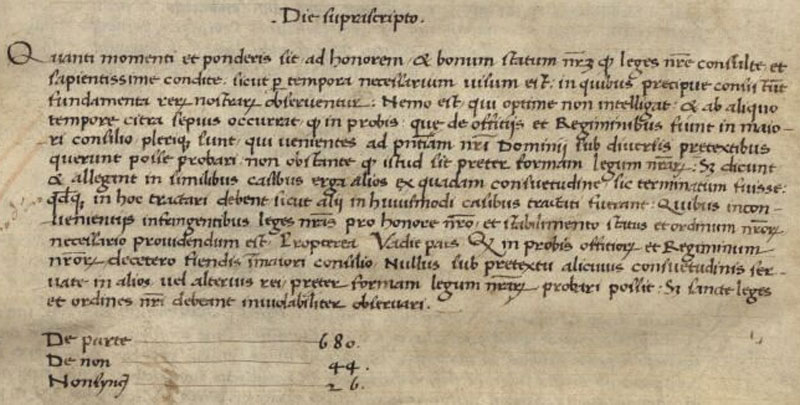 . Die suprascripto .
Quanti momenti et ponderis sit ad honorem / & bonum statum nr̄ʒ ꝙ leges nr̄e consulte et
sapientissime condite / sicut ꝑ tempora necessarium visum est : in quibus precipue
fundamenta rerꝝ nostrarꝝ observentur : Nemo est qui optime non intelligat : & ab aliquo
tempore citra sepius occurrat / ꝙ in probis / que de officijs et Regiminibus fiunt in maio-
ri consilio / pleriqꝫ sunt / qui venientes ad pn̄tiam nr̄i Dominij sub diversis pretextibus
querunt posse probari / non obstante ꝙ istud sit preter formam legum nr̄arꝝ : Sꝫ dicunt
& allegant in similibus casibus erga alios ex quadam consuetudine sic terminatum fuisse :
in hoc tractari debent sicut alij in huiusmodi casibus tractati fuerant : Quibus incon-
venientijs infringentibus leges nr̄as pro honore nr̄o / et stabilimento status et ordinum nr̄orꝝ
necessario providendum est / Propterea Vadit pars Ꝙ in probis offitiorꝝ et Regiminum
nr̄orꝝ decetero fiendis in maiori consilio / Nullus sub pretextu alicuius consuetudinis ser-
vate in alios vel alterius rei / preter formam legum nr̄arꝝ probari possit : Sꝫ sancte leges
et ordines nr̄i debeant inviolabiliter observari .
De parte 680.
De non 44.
Nonsync̄ 26.